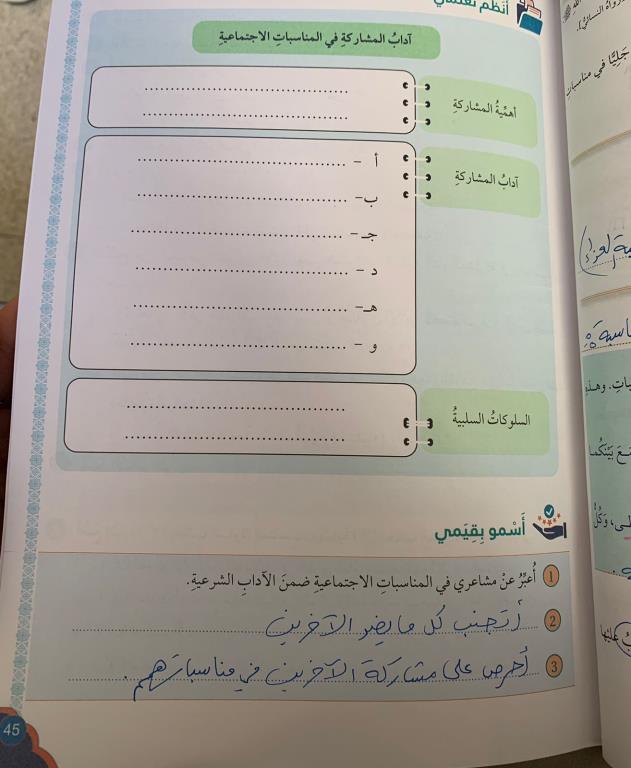 أُنَظِّمُ تَعَلُّمي
آدابُ المشاركةِ في المناسباتِ الاجتماعيةِ
أهمّيةُ المشاركةِ
آدابُ المشاركةِ
أ -
ب-
جـ -
د -
هـ-
و -
السلوكاتُ السلبيةُ
أَسْمو بِقِيَمي
1 أُعبِّرُ عنْ مشاعري في المناسباتِ الاجتماعيةِ ضمنَ الآدابِ الشرعيةِ.
2 أتجنب كل ما يضر الآخرين
3 أحرص على مشاركة الآخرين في مناسباتهم.
45
جَلِيًّا في مناسباتِ
باتِ. وهذهِ
بَيْنَكُما
وَكُلُّ
عليْها